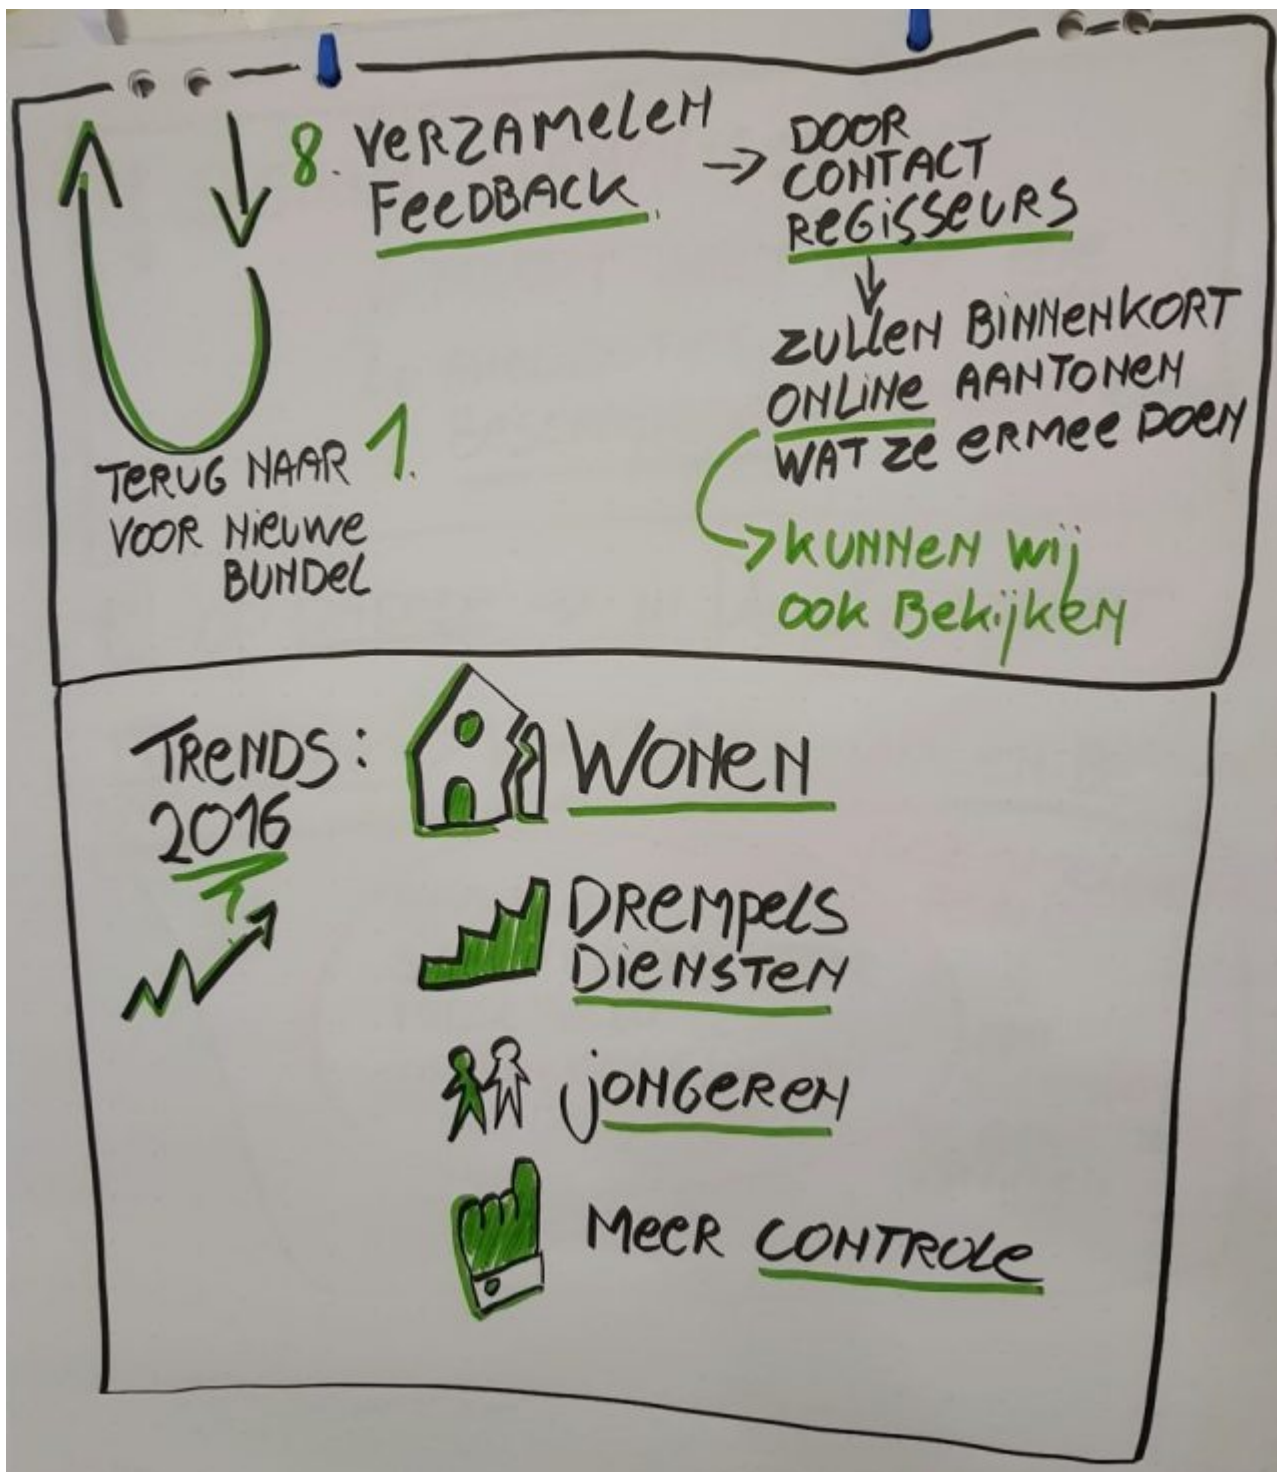 8. VERZAMELEN
FEEDBACK
→ DOOR
CONTACT
REGISSEURS
ZULLEN BINNENKORT
ONLINE AANTONEN
WAT ZE ERMEE DOEN
KUNNEN WIJ
OOK BEKIJKEN
TERUG NAAR 1.
VOOR NIEUWE
BUNDEL
TRENDS:
2016
WONEN
DREMPELS
DIENSTEN
JONGEREN
MEER CONTROLE